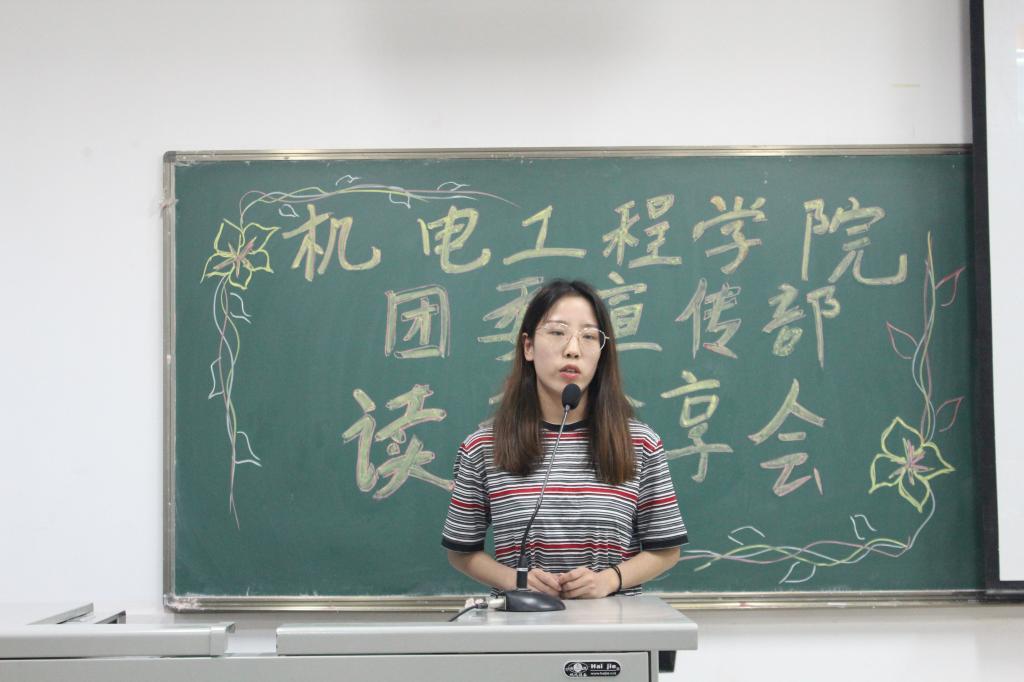 机电工程学院
团委宣传部
读 享会
Hai jie